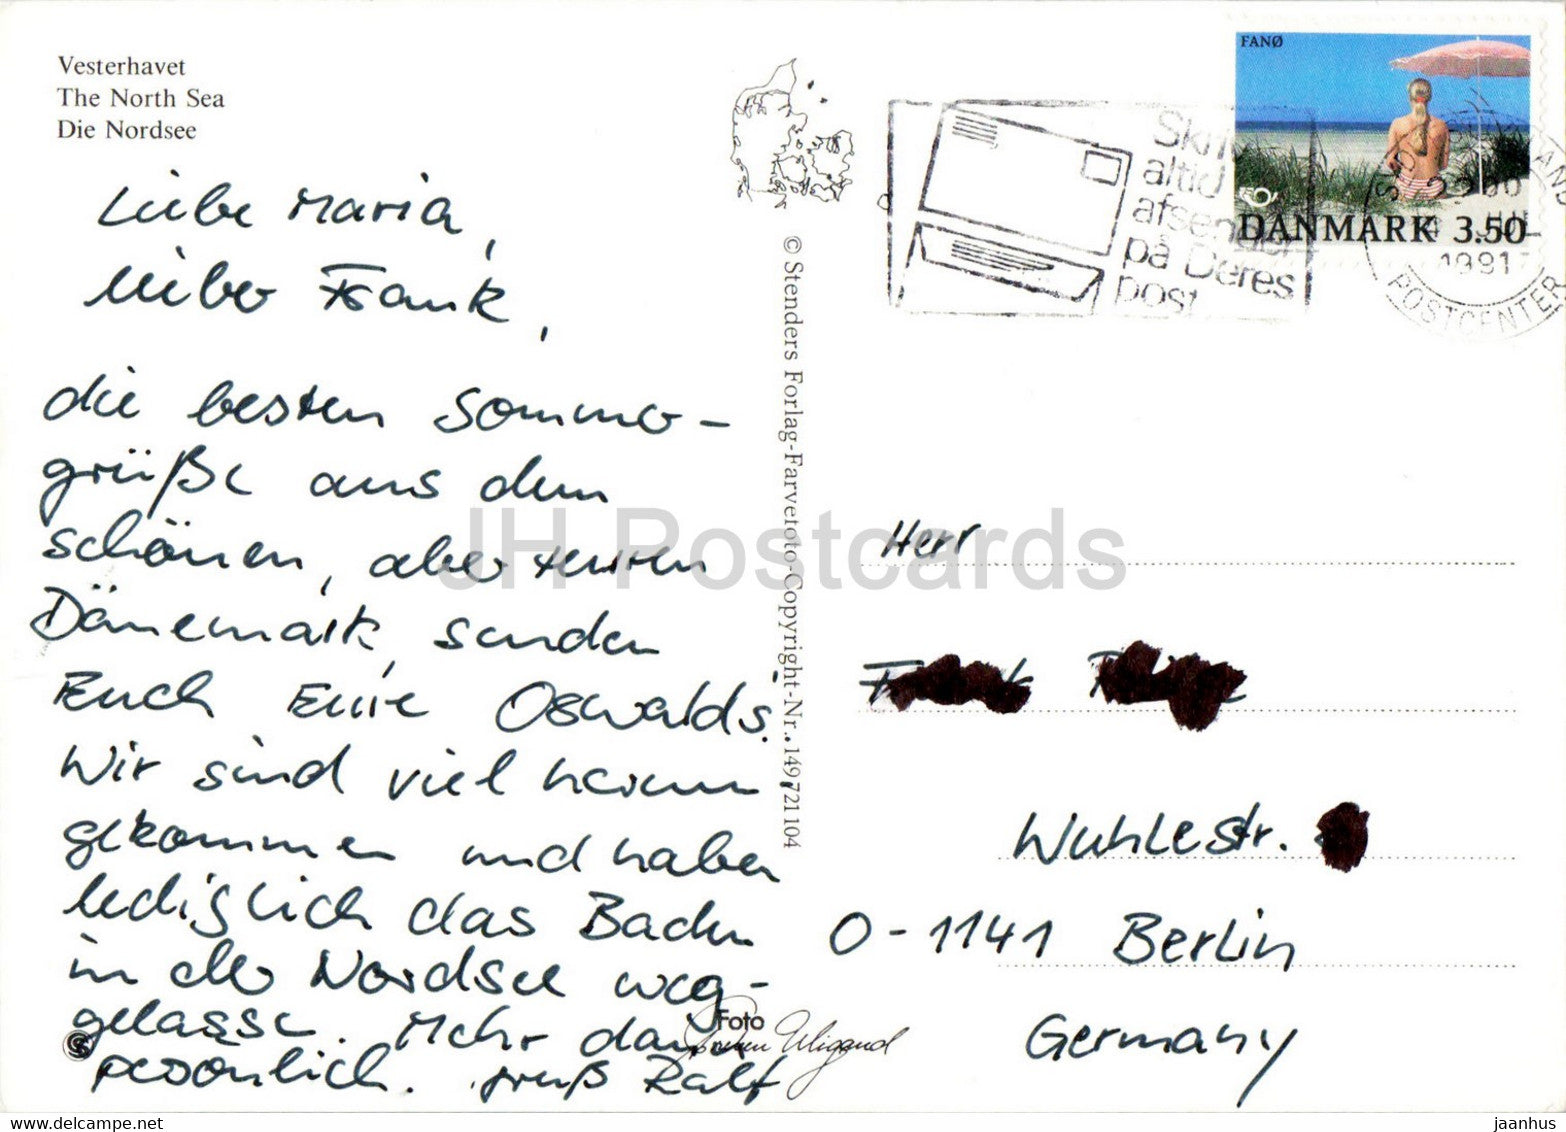 Vesterhavet
The North Sea
Die Nordsee
Liebe Maria,
lieber Frank,
die besten Sommer-
grüße aus dem
schönen, aber teuren
Dänemark, senden
Euch Eure Oswalds.
Wir sind viel herum
gekommen und haben
lediglich das Baden
in der Nordsee weg-
gelassen. Mehr dann
persönlich. Gruß Ralf
Foto
© Stenders Forlag-Farvefoto-Copyright-Nr. 149 721 104
Skriv
altid
afsender
på Deres
post
FANØ
DANMARK 3.50
1991
POSTCENTER
Herr
Wuhlestr.
O-1141 Berlin
Germany
JH Postcards
delcampe.net
jaanhus